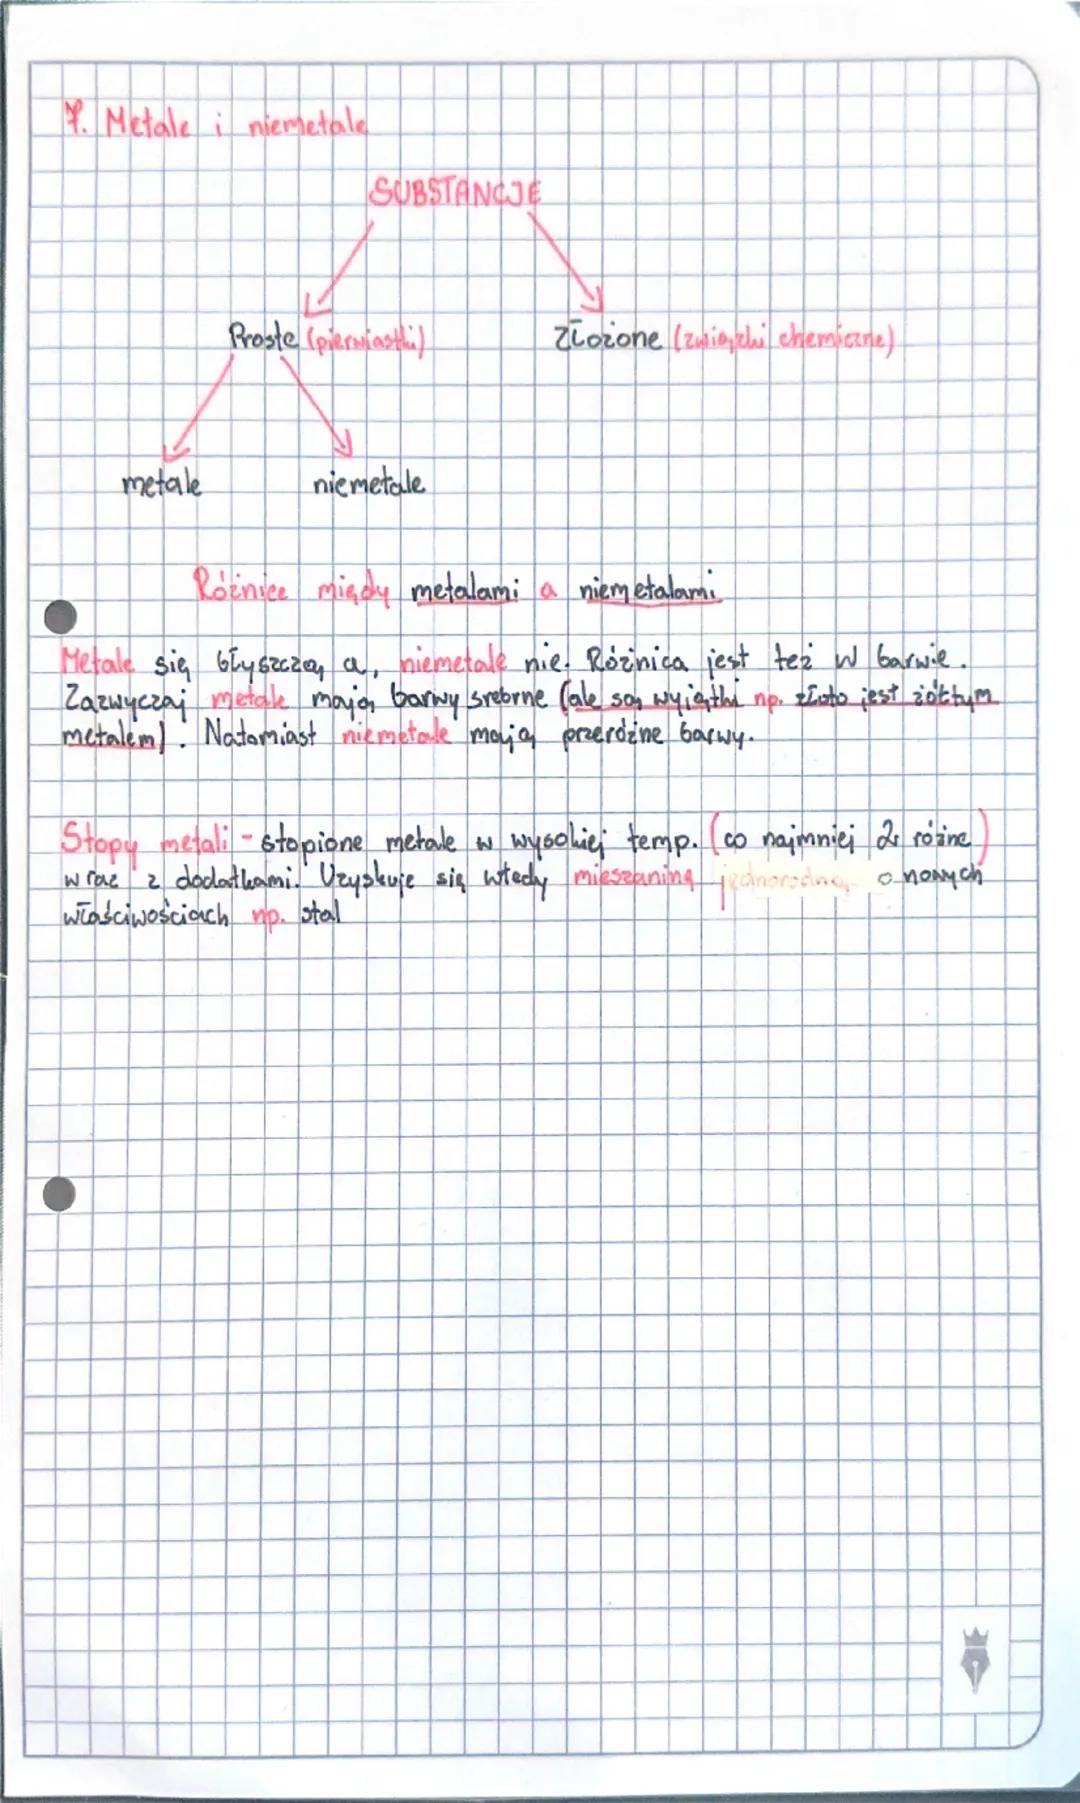 7. Metale i niemetale
SUBSTANCJE
Proste (pierwiastki) Złożone (związki chemiczne)
metale niemetale
Różnice między metalami a niemetalami
Metale się błyszczą a, niemetale nie. Różnica jest też w barwie.
Zazwyczaj metale mają barwy srebrne (ale są wyjątki np. złoto jest żółtym
metalem). Natomiast niemetale mają przeróżne barwy.
Stopy metali - stopione metale w wysokiej temp. (co najmniej 2 różne)
wraz z dodatkami. Uzyskuje się wtedy mieszaninę jednorodną o nowych
właściwościach np. stal